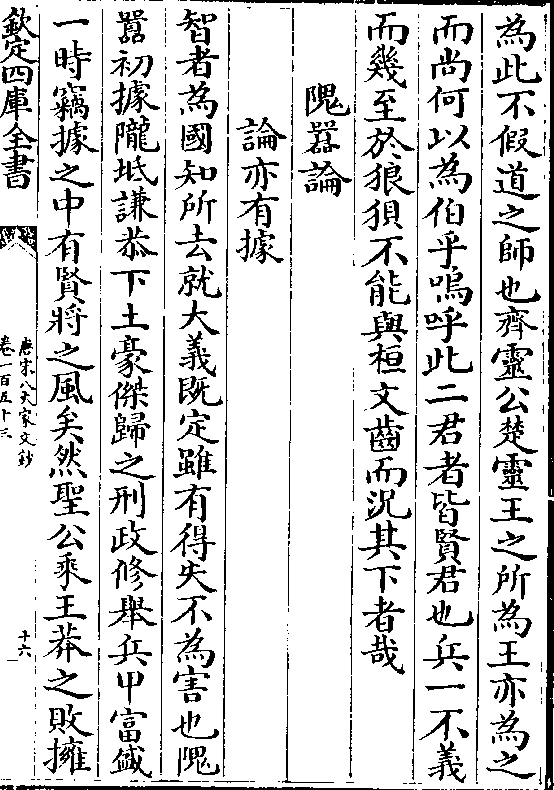 為此不假道之師也齊靈公楚靈王之所為王亦為之
而尚何以為伯乎嗚呼此二君者皆賢君也兵一不義
而幾至於狼狽不能與桓文齒而況其下者哉
隗囂論
論亦有據
智者為國知所去就大義既定雖有得失不為害也隗
囂初據隴坻謙恭下士豪傑歸之刑政修舉兵甲富盛
一時竊據之中有賢將之風矣然聖公乘王莽之敗擁
欽定四庫全書
唐宋八大家文鈔
卷一百五十三
十六